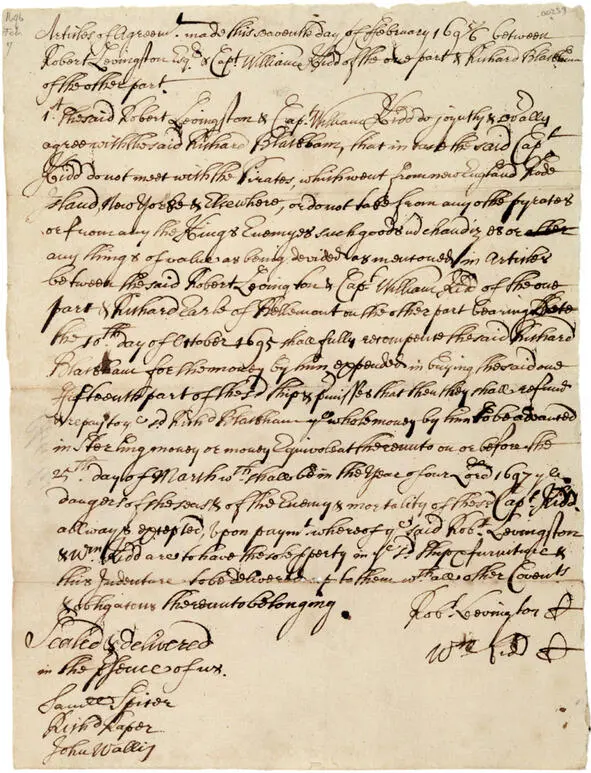 1696
Feb
7
00259
Articles of Agreemt. made this seaventh day of February 1695/6 between
Robert Levingston Esqr. & Capt. William Kidd of the one part & Richard Blackham
of the other part.
1st. The said Robert Levingston & Capt. William Kidd do joyntly & sevally
agree with the said Richard Blackham, that in case the said Capt.
Kidd do not meet with the Pirates, which went from new England Rode
Island New Yorke & Elsewhere, or do not take from any other pyrates
or from any the Kings Enemyes such goods chandizes or other
any things of value as being devided as mentioned in Articles
between the said Robert Levington & Capt. William Kid of the one
part & Richard Earle of Bellemont on the other part bearing Date
the 10th. day of October 1695 shall fully recompense the said Richard
Blackham for the money by him expended in buying the said one
fifteenth part of the sd. ship & that then they shall refund
& repay to ye sd. Richd. Blackham ye whole money by him to be advanced
in Sterling money or money Equivolent thereunto on or before the
25th. day of March wch. shall be in the Year of our Lord 1697 ye
dangers of the seas & of the Enemy & mortality of the sd Capt. Kidd
allways excepted, upon paymt. whereof ye said Robt. Levingston
& Wm. Kidd are to have the sole pperty in ye sd. ship & furniture &
this Indenture to be delivered to them wth. all other Covents
& obligations thereunto belonging.
Robt. Levington
Sealed & delivered
Wm Kidd
in the psence of us.
Samll Spicer
Richd Raper
John Wallis